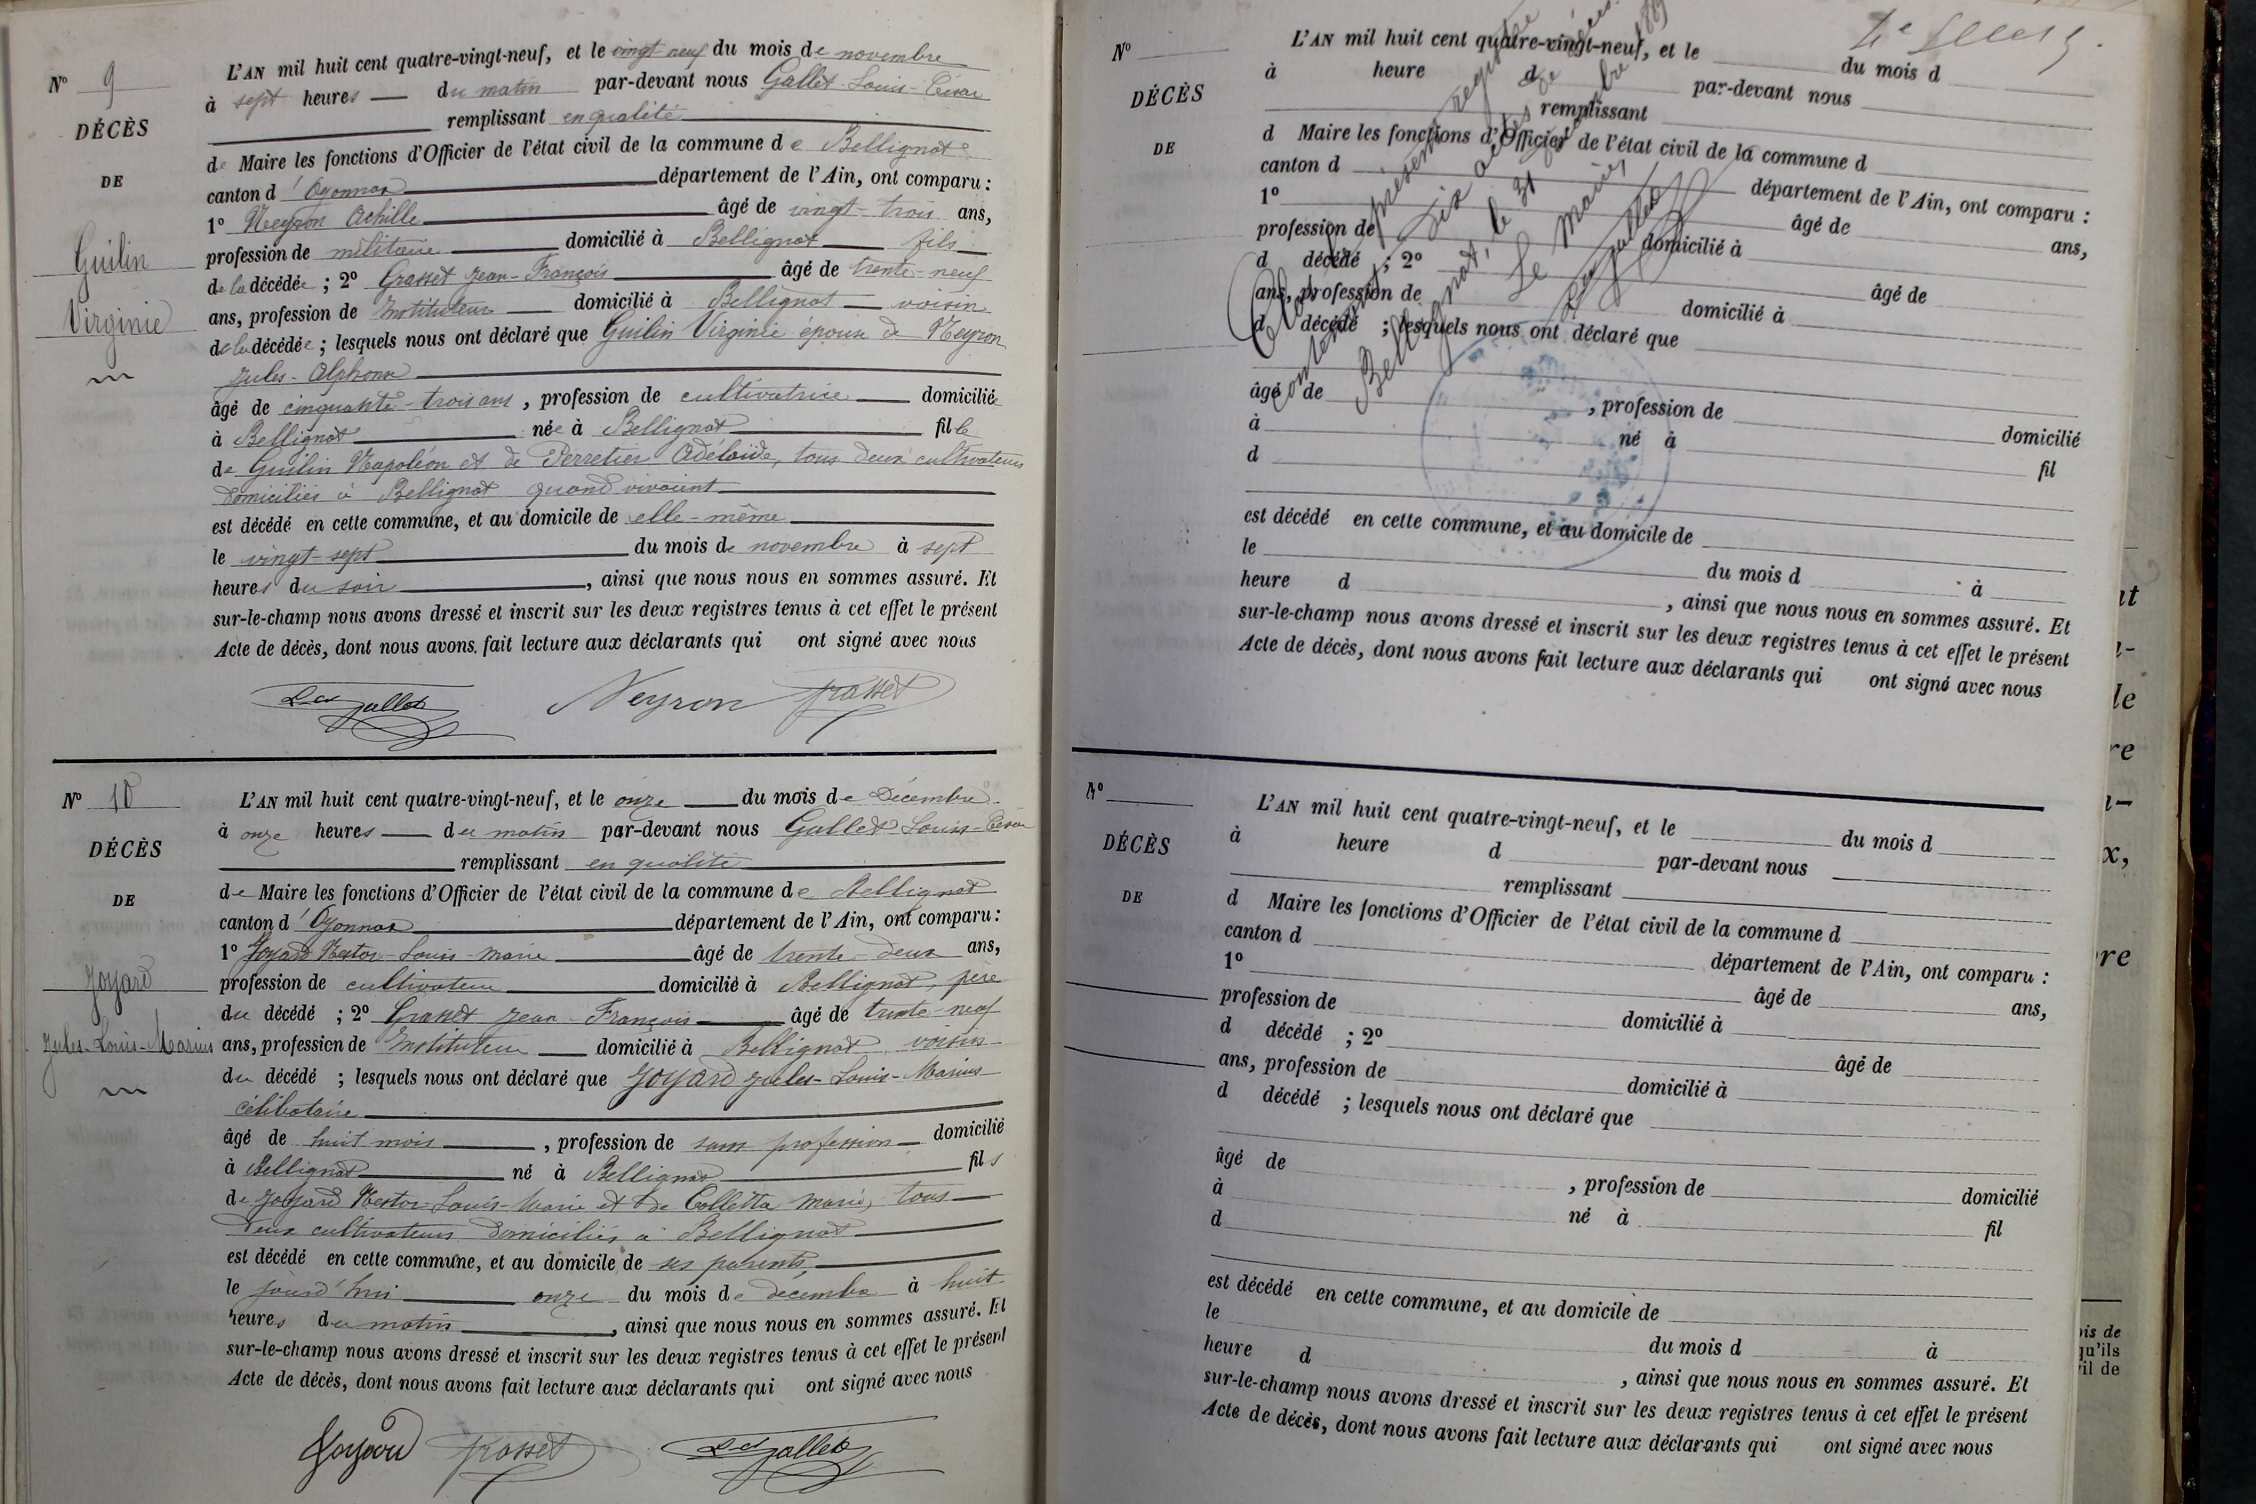 N° 9
DÉCÈS
DE
Guilin
Virginie
L'AN mil huit cent quatre-vingt-neuf, et le vingt neuf du mois de novembre
à sept heures du matin par-devant nous Gallet Louis-César
remplissant en qualité
de Maire les fonctions d'Officier de l'état civil de la commune de Bellignat
canton d'Oyonnax département de l'Ain, ont comparu :
1° Neyron Achille âgé de vingt-trois ans,
profession de militaire domicilié à Bellignat fils
de la décédée ; 2° Grasset Jean-François âgé de trente-neuf
ans, profession de Instituteur domicilié à Bellignat voisin
de la décédée ; lesquels nous ont déclaré que Guilin Virginie épouse de Neyron
Jules-Alphonse
âgé de cinquante-trois ans, profession de cultivatrice domiciliée
à Bellignat née à Bellignat fille
de Guilin Napoléon et de Perretier Adélaïde, tous deux cultivateurs
domiciliés à Bellignat quand vivaient
est décédé en cette commune, et au domicile de elle-même
le vingt-sept du mois de novembre à sept
heures du soir, ainsi que nous nous en sommes assuré. Et
sur-le-champ nous avons dressé et inscrit sur les deux registres tenus à cet effet le présent
Acte de décès, dont nous avons fait lecture aux déclarants qui ont signé avec nous
Gallet Neyron Grasset
N° 10
DÉCÈS
DE
Joyard
Jules-Louis-Marius
L'AN mil huit cent quatre-vingt-neuf, et le onze du mois de Décembre
à onze heures du matin par-devant nous Gallet Louis-César
remplissant en qualité
de Maire les fonctions d'Officier de l'état civil de la commune de Bellignat
canton d'Oyonnax département de l'Ain, ont comparu :
1° Joyard Nestor-Louis-Marie âgé de trente-deux ans,
profession de cultivateur domicilié à Bellignat, père
du décédé ; 2° Grasset Jean-François âgé de trente-neuf
ans, profession de Instituteur domicilié à Bellignat voisin
du décédé ; lesquels nous ont déclaré que Joyard Jules-Louis-Marius
célibataire
âgé de huit mois, profession de sans profession domicilié
à Bellignat né à Bellignat fils
de Joyard Nestor-Louis-Marie et de Colletta Marie, tous
deux cultivateurs domiciliés à Bellignat
est décédé en cette commune, et au domicile de ses parents,
le jourd'hui onze du mois de décembre à huit
heures du matin, ainsi que nous nous en sommes assuré. Et
sur-le-champ nous avons dressé et inscrit sur les deux registres tenus à cet effet le présent
Acte de décès, dont nous avons fait lecture aux déclarants qui ont signé avec nous
Joyard Grasset Gallet
N°
DÉCÈS
DE
L'AN mil huit cent quatre-vingt-neuf, et le du mois d
à heure d par-devant nous
remplissant
d Maire les fonctions d'Officier de l'état civil de la commune d
canton d département de l'Ain, ont comparu :
1° âgé de ans,
profession de domicilié à
d décédé ; 2° âgé de
ans, profession de domicilié à
d décédé ; lesquels nous ont déclaré que
âgé de , profession de domicilié
à né à fil
d
est décédé en cette commune, et au domicile de
le du mois d à
heure d , ainsi que nous nous en sommes assuré. Et
sur-le-champ nous avons dressé et inscrit sur les deux registres tenus à cet effet le présent
Acte de décès, dont nous avons fait lecture aux déclarants qui ont signé avec nous
Clos le présent registre
contenant dix actes de décès
Bellignat, le 31 décembre 1889
Le Maire,
Gallet
N°
DÉCÈS
DE
L'AN mil huit cent quatre-vingt-neuf, et le du mois d
à heure d par-devant nous
remplissant
d Maire les fonctions d'Officier de l'état civil de la commune d
canton d département de l'Ain, ont comparu :
1° âgé de ans,
profession de domicilié à
d décédé ; 2° âgé de
ans, profession de domicilié à
d décédé ; lesquels nous ont déclaré que
âgé de , profession de domicilié
à né à fil
d
est décédé en cette commune, et au domicile de
le du mois d à
heure d , ainsi que nous nous en sommes assuré. Et
sur-le-champ nous avons dressé et inscrit sur les deux registres tenus à cet effet le présent
Acte de décès, dont nous avons fait lecture aux déclarants qui ont signé avec nous